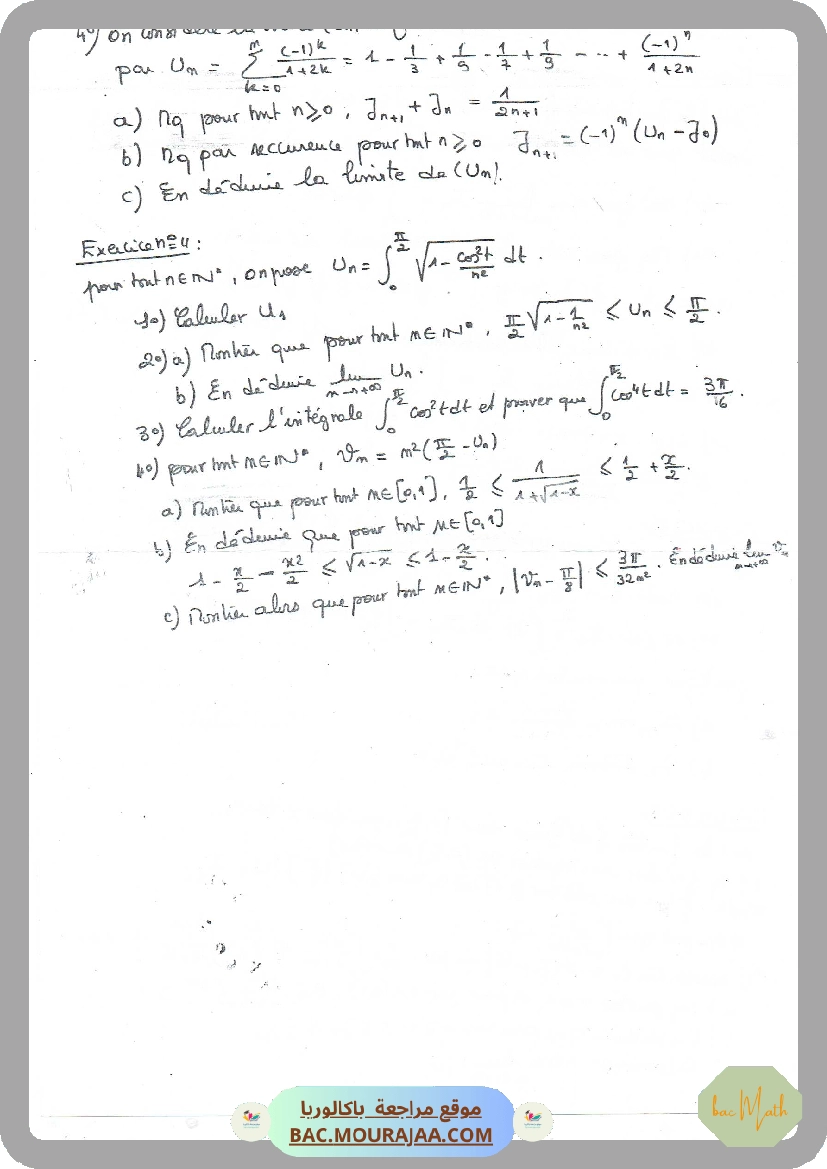 4°) On considère
par Un = \sum_{k=0}^{n} \frac{(-1)^k}{1+2k} = 1 - \frac{1}{3} + \frac{1}{5} - \frac{1}{7} + \frac{1}{9} - - - + \frac{(-1)^n}{1+2n}
a) Mq pour tout n ⩾ 0, J_{n+1} + J_n = \frac{1}{2n+1}
b) Mq par reccurence pour tout n ⩾ 0 J_{n+1} = (-1)^n (Un - J_0)
c) En déduire la limite de (Un).
Exercice n°4 :
pour tout n ∈ IN*, on pose Un = \int_0^{\frac{π}{2}} \sqrt{1 - \frac{cos^2 t}{n^2}} dt .
1°) Calculer U_1
2°) a) Montrer que pour tout n ∈ IN*, \frac{π}{2} \sqrt{1 - \frac{1}{n^2}} ⩽ Un ⩽ \frac{π}{2} .
b) En déduire \lim_{n→+∞} Un .
3°) Calculer l'intégrale \int_0^{\frac{π}{2}} cos^2 t dt et prouver que \int_0^{\frac{π}{2}} cos^4 t dt = \frac{3π}{16} .
4°) pour tout n ∈ IN*, Vn = n^2 (\frac{π}{2} - Un)
a) Montrer que pour tout x ∈ [0,1], \frac{1}{2} ⩽ \frac{1}{1+\sqrt{1-x}} ⩽ \frac{1}{2} + \frac{x}{2} .
b) En déduire que pour tout x ∈ [0,1]
1 - \frac{x}{2} - \frac{x^2}{2} ⩽ \sqrt{1-x} ⩽ 1 - \frac{x}{2} .
c) Montrer alors que pour tout n ∈ IN*, |Vn - \frac{π}{8}| ⩽ \frac{3π}{32n^2} . En déduire \lim_{n→+∞} Vn
bac Math
موقع مراجعة باكالوريا
BAC.MOURAJAA.COM